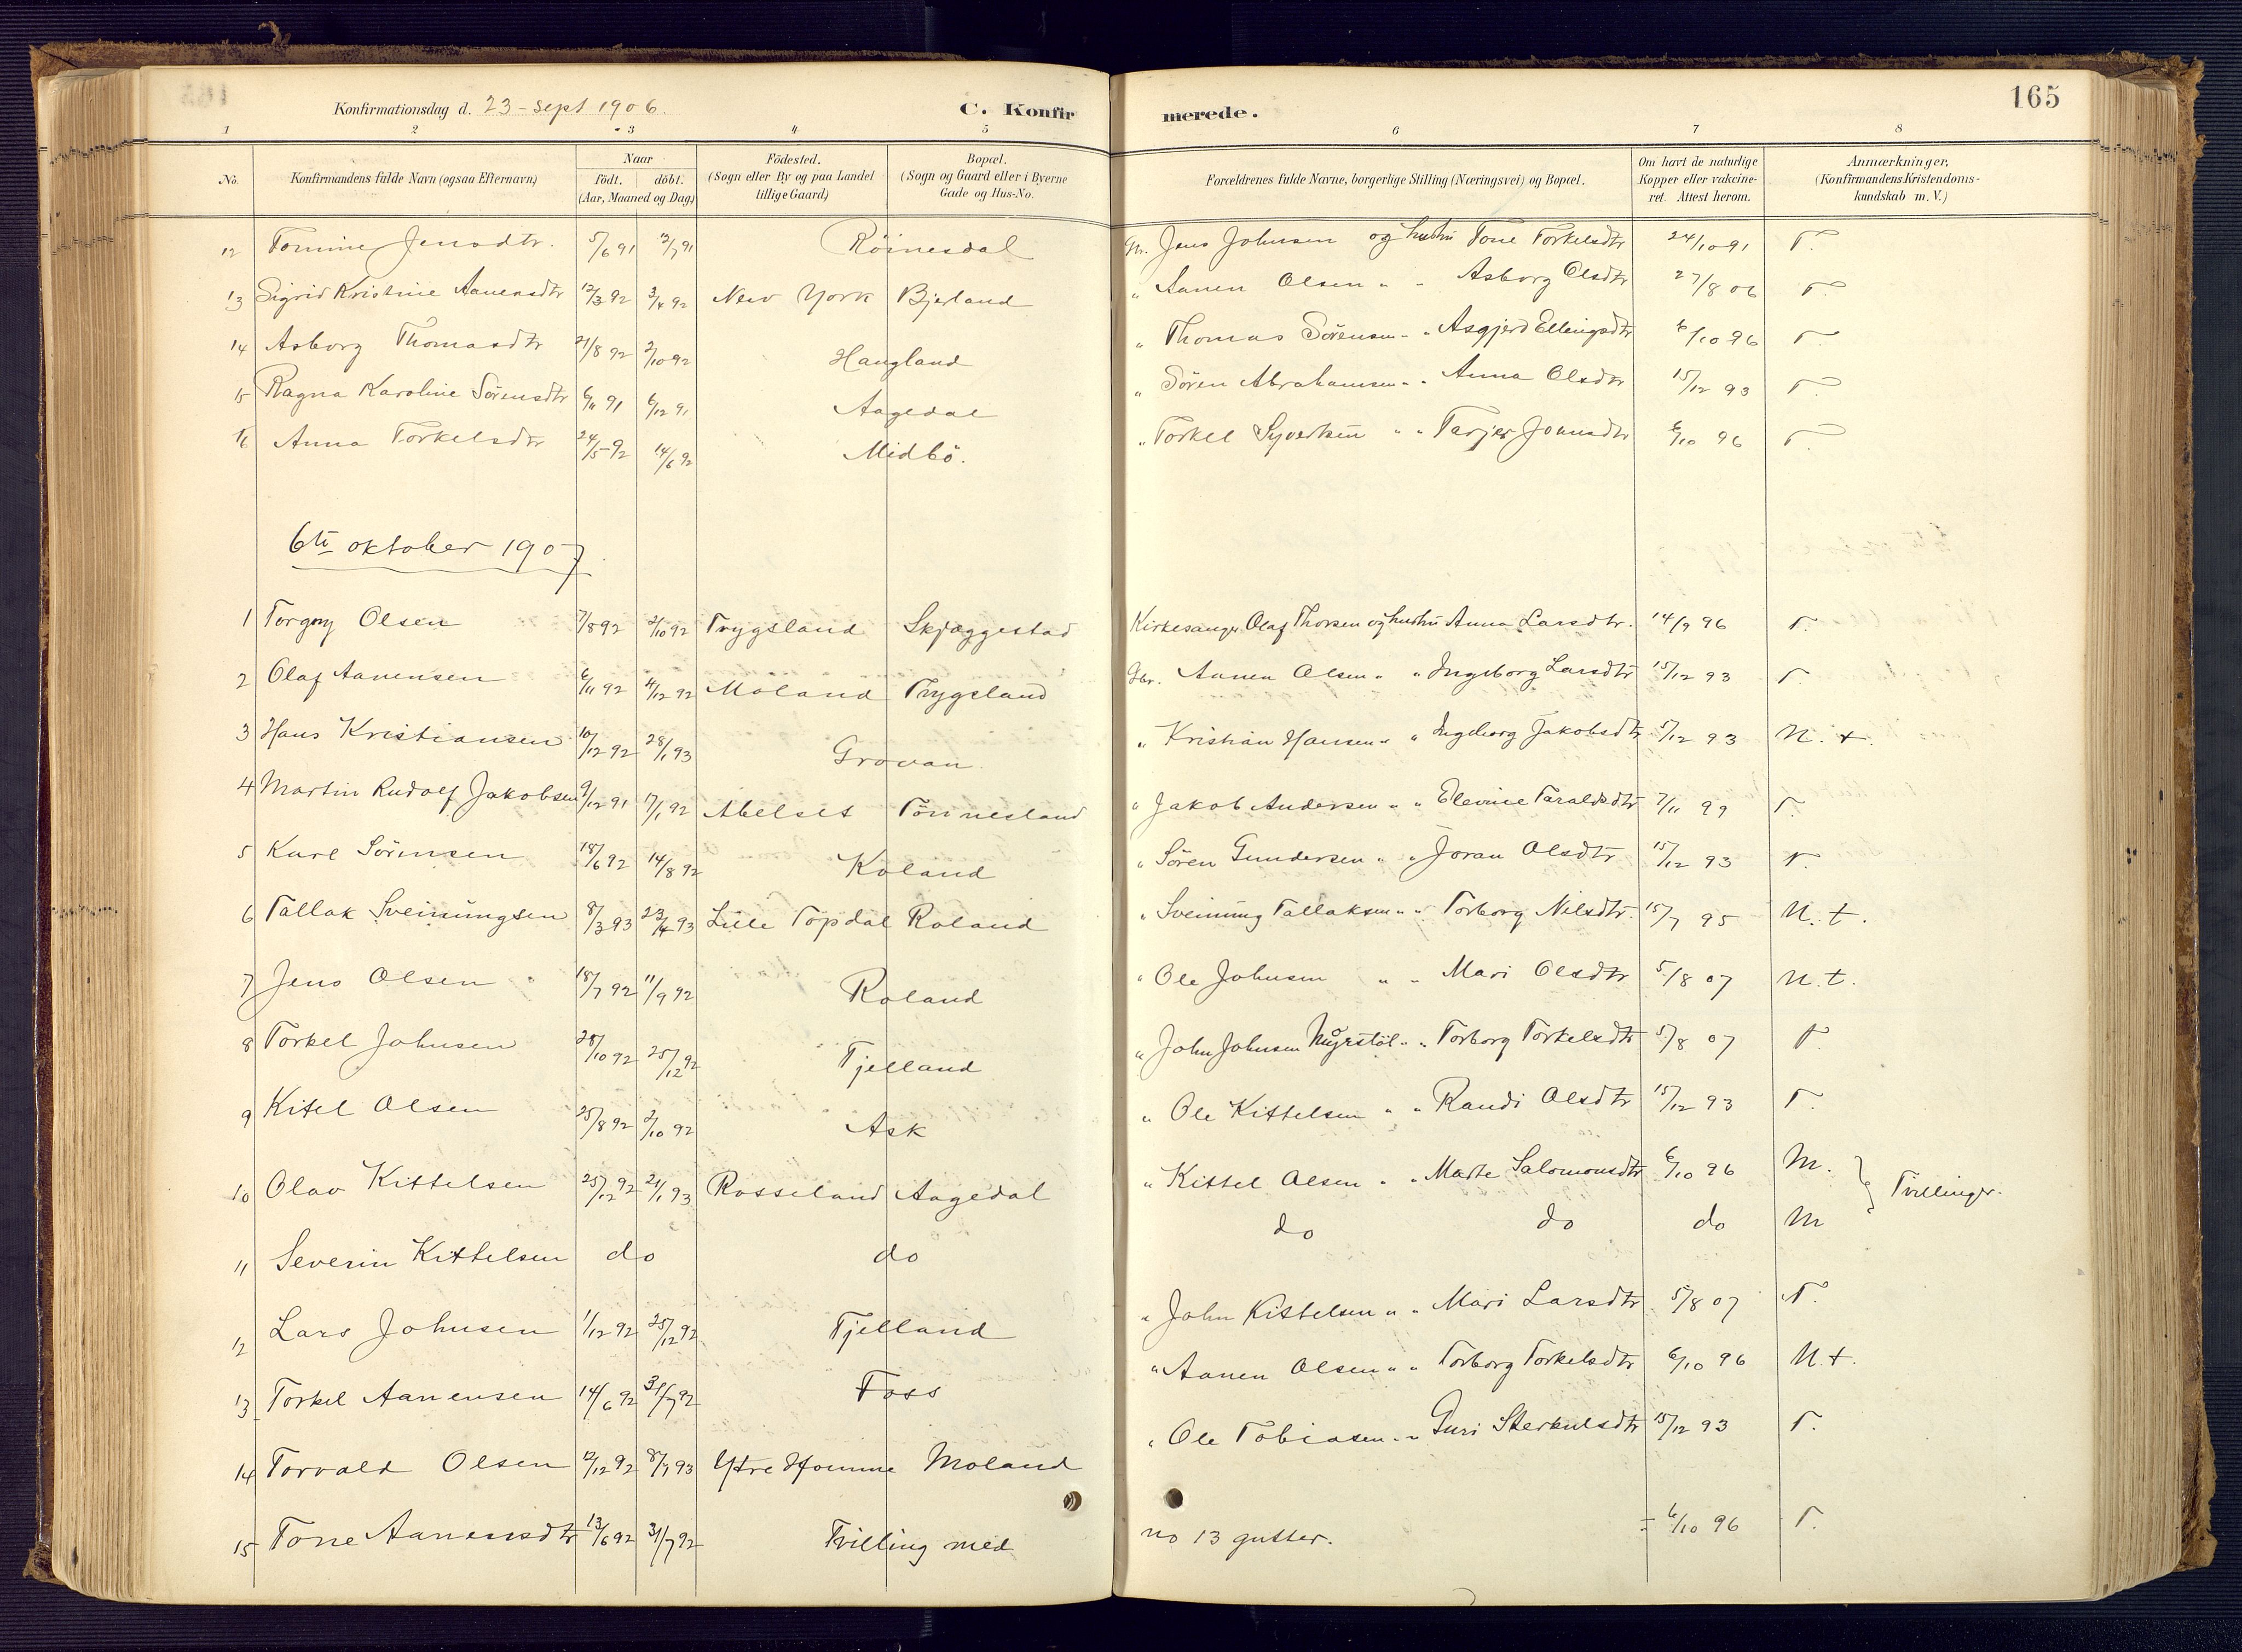 165
Konfirmationsdag d. 23 - Sept 1906. C. Konfirmerede.
1 2 3 4 5 6 7 8
No. Konfirmandens fulde Navn (ogsaa Efternavn) Naar födt. döbt. (Aar, Maaned og Dag) Födested. (Sogn eller By og paa Landet tillige Gaard) Bopæl. (Sogn og Gaard eller i Byerne Gade og Hus-No. Forældrenes fulde Navne, borgerlige Stilling (Næringsvei) og Bopæl. Om havt de naturlige Kopper eller vakcineret. Attest herom. Anmærkninger, (Konfirmandens Kristendomskundskab m. V.)
12 Tomine Jensdtr. 5/6 91 12/7 91 Röinesdal Jens Johnsen og hustru Tone Torkelsdtr 24/10 91 T.
13 Sigrid Kristine Aanensdtr 12/3 92 3/4 92 New York Bjerland " Aanen Olsen " " Asborg Olsdtr 27/8 06 T.
14 Asborg Thomasdtr 21/8 92 2/10 92 Haugland " Thomas Sörensen - " Asgjerd Ellingsdtr 6/10 96 T.
15 Ragna Karoline Sörensdtr 6/11 91 6/12 91 Aagedal " Sören Abrahamsen " " Anna Olsdtr 15/12 93 T.
16 Anna Torkelsdtr 24/5 92 14/6 92 Midbö. " Torkel Syvertsen " " Tarjer Jonnsdtr 6/10 96 T.
6te oktober 1907
1 Torgny Olsen 7/8 92 2/10 92 Trygsland Skjæggestad Kirkesanger Olaf Thorsen og hustru Anna Larsdtr. 14/9 96 T.
2 Olaf Aanensen 6/11 92 4/12 92 Moland Trygsland Gbr. Aanen Olsen " " Ingeborg Larsdtr 15/12 93 T.
3 Hans Kristiansen 10/12 92 28/1 93 Grovan " Kristian Hansen " " Ingeborg Jakobsdtr 5/12 93 N. t.
4 Martin Rudolf Jakobsen 9/12 91 17/1 92 Abelset Tönnesland " Jakob Andersen " " Elevine Taraldsdtr 7/11 99 T.
5 Karl Sörensen 18/6 92 14/8 92 Koland " Sören Gundersen " " Joran Olsdtr 15/12 93 T.
6 Tallak Sveinungsen 8/3 93 23/4 93 Lille Topdal Roland " Sveinung Tallaksen " " Torborg Nilsdtr. 15/7 95 N. t.
7 Jens Olsen 18/7 92 11/9 92 Roland " Ole Johnsen " " Mari Olsdtr 5/8 07 N. t.
8 Torkel Johnsen 28/10 92 25/12 92 Tjelland " John Johnsen Myrstöl " " Torborg Torkelsdtr 5/8 07 T.
9 Kitel Olsen 25/8 92 2/10 92 Ask " Ole Kittelsen " " Randi Olsdtr 15/12 93 T.
10 Olav Kittelsen 25/12 92 21/1 93 Rosseland Aagedal " Kittel Olsen " " Marte Salomonsdtr 6/10 96 M. Tvillinger.
11 Severin Kittelsen do do do do do M
12 Lars Johnsen 1/12 92 25/12 92 Tjelland " John Kittelsen " " Mari Larsdtr 5/8 07 T.
13 Torkel Aanensen 14/6 92 31/7 92 Foss " Aanen Olsen " " Torborg Torkelsdtr 6/10 96 N. t.
14 Torvald Olsen 12/12 92 8/1 93 Ytre Homme Moland " Ole Tobiasen " " Guri Sterkulsdtr 15/12 93 T.
15 Tone Aanensdtr 13/6 92 31/7 92 Tvilling med no 13 gutter. = 6/10 96 T.